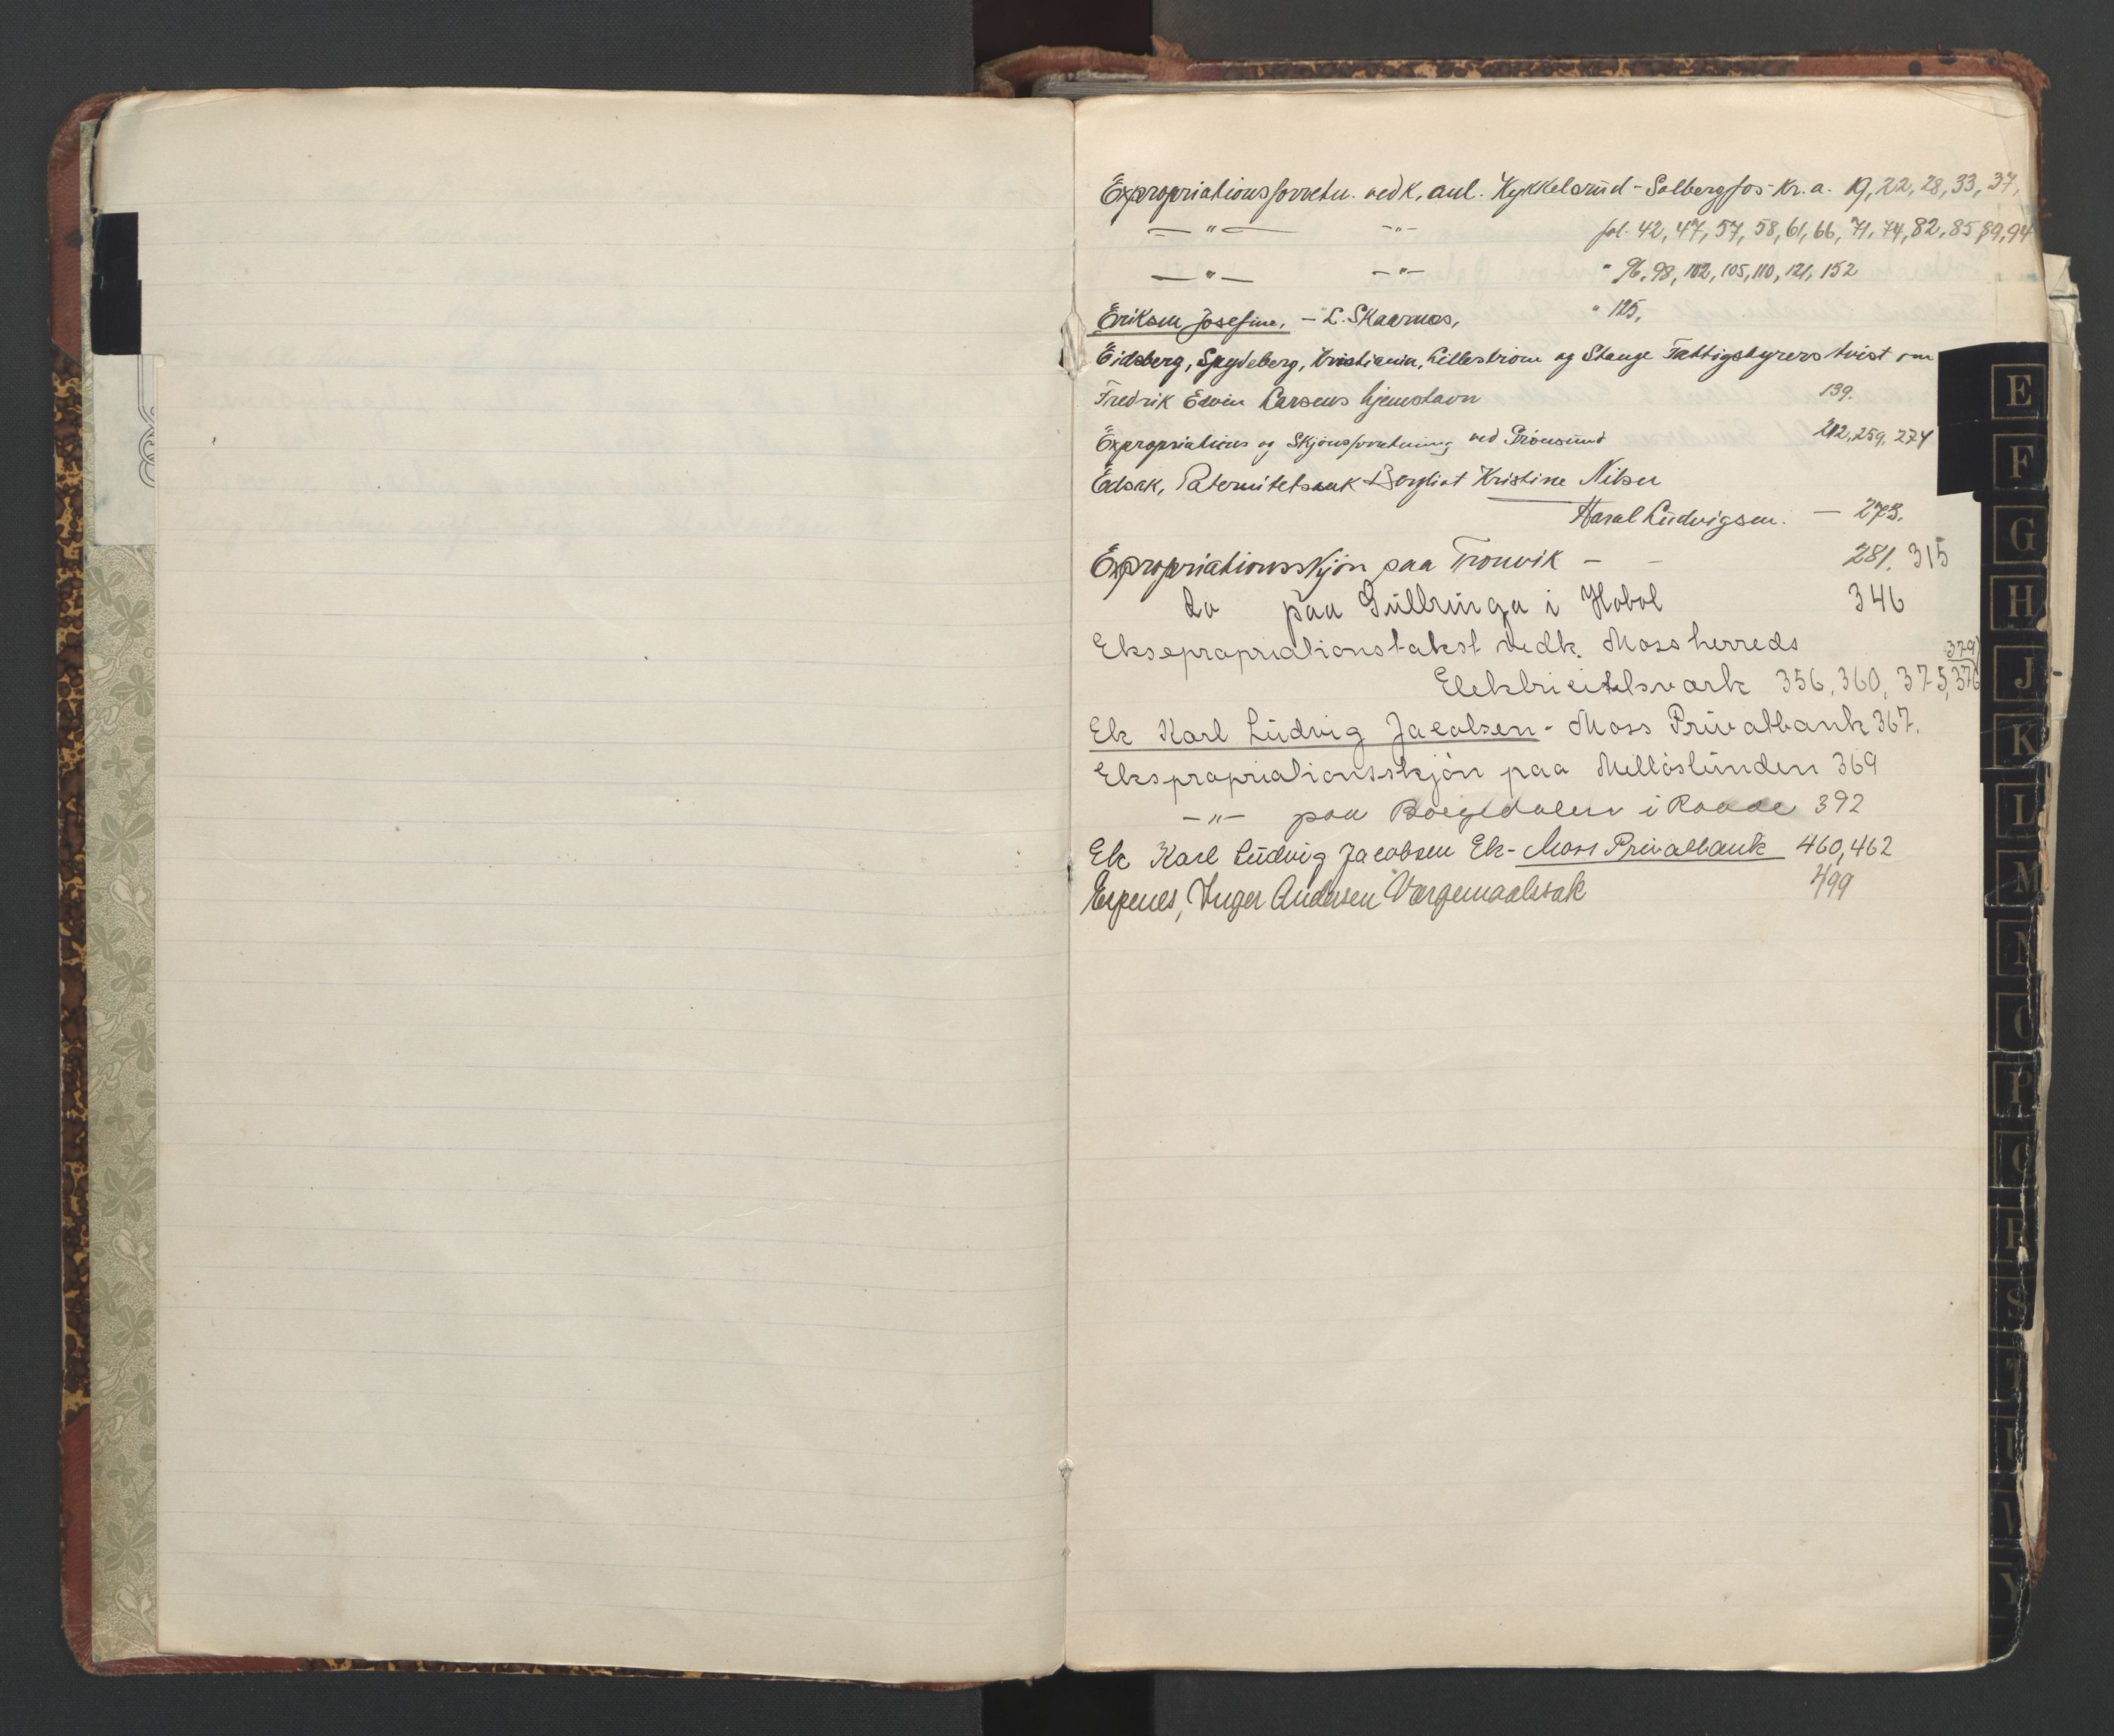 Expropriationsforretn. vedk. anl. Kykkelsrud-Solbergfos-Kr.a. 19, 22, 28, 33, 37,
—"— —"— fol. 42, 47, 57, 58, 61, 66, 71, 74, 82, 85, 89, 94
—"— —"— " 96, 98, 102, 105, 110, 121, 152
Eriksen Josefine, - L. Skaarnæs, " 125,
Eidsberg, Spydeberg, Kristiania, Lillestrøm og Stange Fattigstyrers tvist om
Fredrik Edvin Larsens hjemstavn 139.
Expropriations og Skjønsforretning ved Grönsund 212, 259, 274
Edsak, Paternitetssak Borghat Kristine Nilsen
Haral Ludvigsen. — 273.
Expropriationsskjön paa Tronvik - - 281, 315
Do paa Gullringa i Hobøl 346
Eksepropriationstakst vedk. Moss herreds
Elektricitetsverk 356, 360, 375, 376 379)
Ek Karl Ludvig Jacobsen - Moss Privatbank 367.
Ekspropriationsskjön paa Mellöslunden 369
—"— paa Bøgedalen i Raade 392
Ek Karl Ludvig Jacobsen Ek - Moss Privatbank 460, 462
Espenes, Inger Andersen Vergemaalssak 499
E
F
G
H
J
K
L
M
N
O
P
Q
R
S
T
U
V
Y